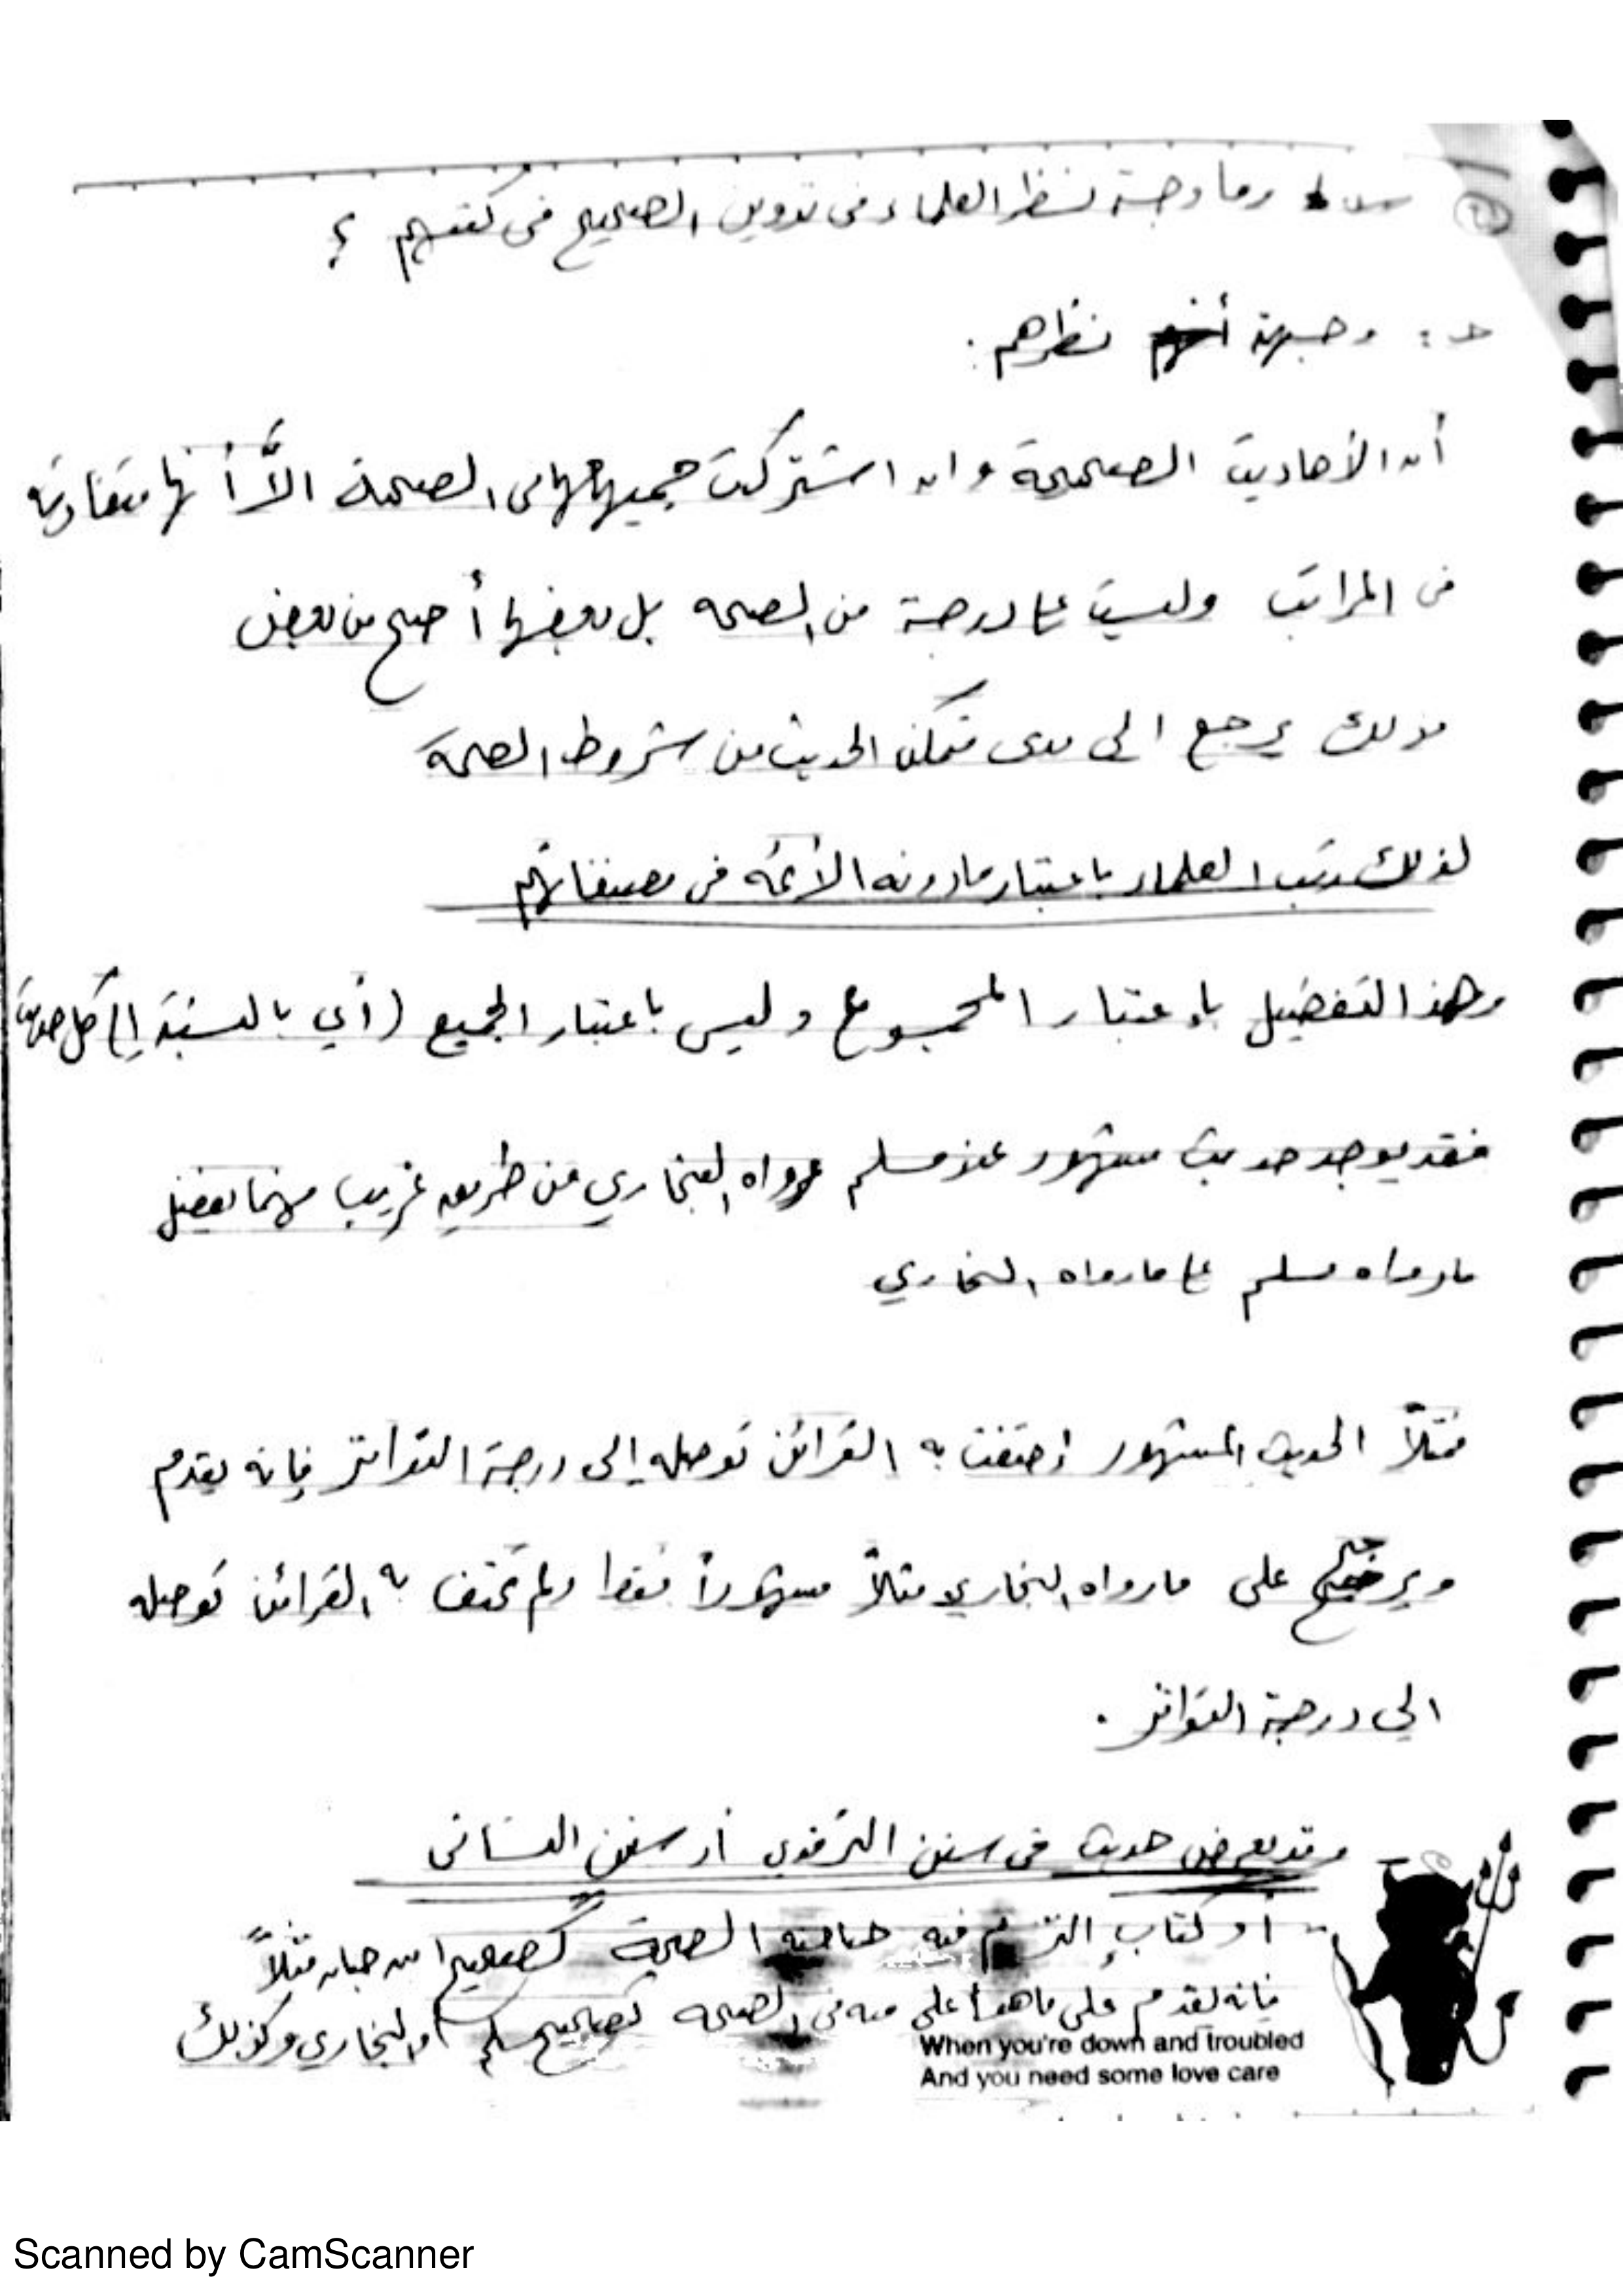 وما وجهة نظر العلماء فى تدوين الصحيح فى كتبهم ؟
ج : وجهة نظرهم :
أن الأحاديث الصحيحة وان اشتركت جميعها فى الصحة الاَّ أنها متفاوتة
فى المراتب وليست على درجة من الصحة بل بعضها أصح من بعض
وذلك يرجع الى مدى تمكن الحديث من شروط الصحة
لذلك رتب العلماء باعتبار مادونه الأئمة فى مصنفاتهم
وهذا التفضيل بإعتبار المجموع وليس باعتبار الجميع (أي بالنسبة إلى كل حديث
فقد يوجد حديث مشهور عند مسلم ورواه البخاري من طريق غريب فهنا نفضل
مارواه مسلم على مارواه البخاري
فمثلاً الحديث المشهور إحتفت به القرائن توصله إلى درجة التواتر فإنه يقدم
ويرجح على مارواه البخاري مثلاً مشهوراً فقط ولم تحتف به القرائن توصله
الى درجة التواتر .
وقد يعرض حديث فى سنن الترمذي أو سنن النسائى
أو كتاب إلتزم فيه صاحبه الصحة كصحيح ابن حبان مثلاً
فانه يقدم على ماهو أعلى منه فى الصحة كصحيح مسلم والبخاري وكذلك
When you're down and troubled
And you need some love care
Scanned by CamScanner